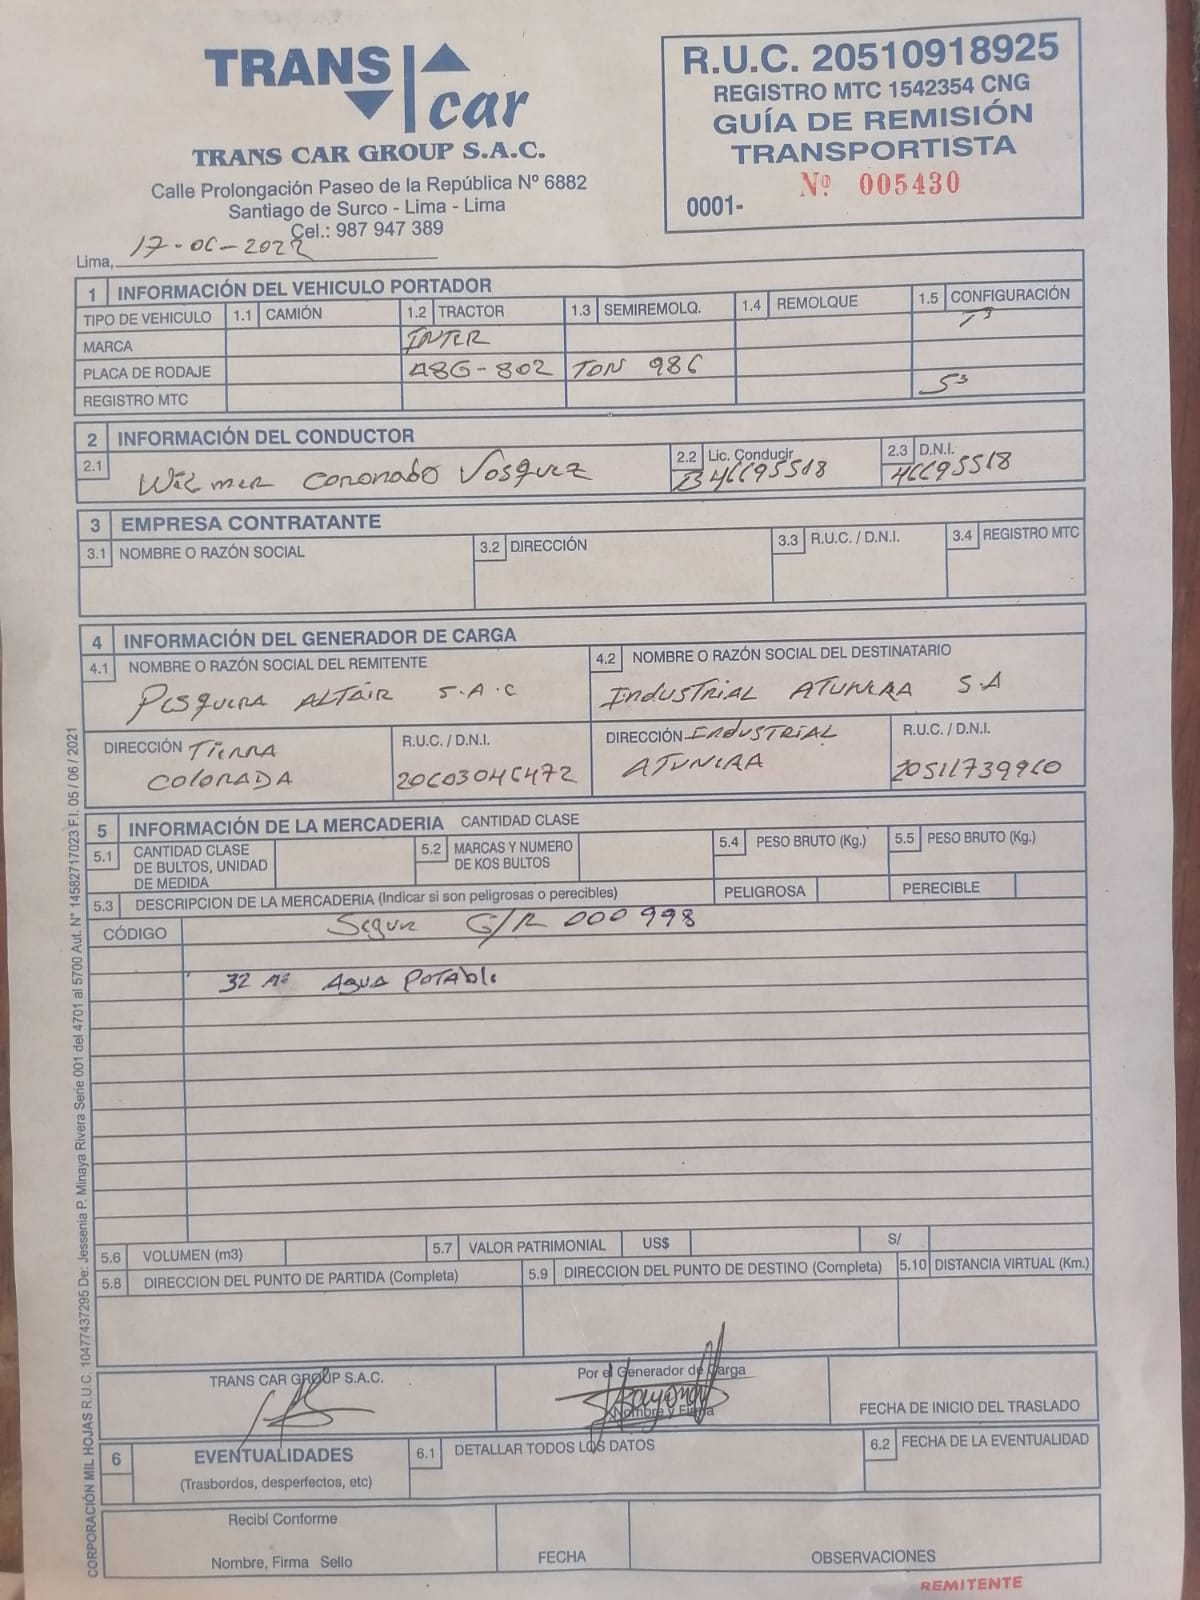 TRANS car
TRANS CAR GROUP S.A.C.
Calle Prolongación Paseo de la República Nº 6882
Santiago de Surco - Lima - Lima
Cel.: 987 947 389
R.U.C. 20510918925
REGISTRO MTC 1542354 CNG
GUÍA DE REMISIÓN
TRANSPORTISTA
0001- Nº 005430
Lima, 17-06-2022
1 INFORMACIÓN DEL VEHICULO PORTADOR
TIPO DE VEHICULO 1.1 CAMIÓN 1.2 TRACTOR 1.3 SEMIREMOLQ. 1.4 REMOLQUE 1.5 CONFIGURACIÓN
T3
MARCA INTER
PLACA DE RODAJE A8G-802 TON 986
S3
REGISTRO MTC
2 INFORMACIÓN DEL CONDUCTOR
2.1 Wilmer Coronado Vosquez 2.2 Lic. Conducir B46695518 2.3 D.N.I. 46695518
3 EMPRESA CONTRATANTE
3.1 NOMBRE O RAZÓN SOCIAL 3.2 DIRECCIÓN 3.3 R.U.C. / D.N.I. 3.4 REGISTRO MTC
4 INFORMACIÓN DEL GENERADOR DE CARGA
4.1 NOMBRE O RAZÓN SOCIAL DEL REMITENTE 4.2 NOMBRE O RAZÓN SOCIAL DEL DESTINATARIO
Pesquera ALTAIR S.A.C Industrial ATUNERA S.A
DIRECCIÓN Tierra R.U.C. / D.N.I. DIRECCIÓN Industrial R.U.C. / D.N.I.
COLORADA 20603046472 ATUNERA 20511739960
5 INFORMACIÓN DE LA MERCADERIA CANTIDAD CLASE
5.1 CANTIDAD CLASE DE BULTOS, UNIDAD DE MEDIDA 5.2 MARCAS Y NUMERO DE KOS BULTOS 5.4 PESO BRUTO (Kg.) 5.5 PESO BRUTO (Kg.)
5.3 DESCRIPCION DE LA MERCADERIA (Indicar si son peligrosas o perecibles) PELIGROSA PERECIBLE
CÓDIGO Segun G/R 000998
32 M3 Agua Potable
5.6 VOLUMEN (m3) 5.7 VALOR PATRIMONIAL US$ S/
5.8 DIRECCION DEL PUNTO DE PARTIDA (Completa) 5.9 DIRECCION DEL PUNTO DE DESTINO (Completa) 5.10 DISTANCIA VIRTUAL (Km.)
TRANS CAR GROUP S.A.C. Por el Generador de Carga
Nombre y Firma FECHA DE INICIO DEL TRASLADO
6 EVENTUALIDADES 6.1 DETALLAR TODOS LOS DATOS 6.2 FECHA DE LA EVENTUALIDAD
(Trasbordos, desperfectos, etc)
Recibí Conforme
Nombre, Firma Sello FECHA OBSERVACIONES
REMITENTE
CORPORACIÓN MIL HOJAS R.U.C. 10477437295 De: Jessenia P. Minaya Rivera Serie 001 del 4701 al 5700 Aut. N° 14582717023 F.I. 05 / 06 / 2021